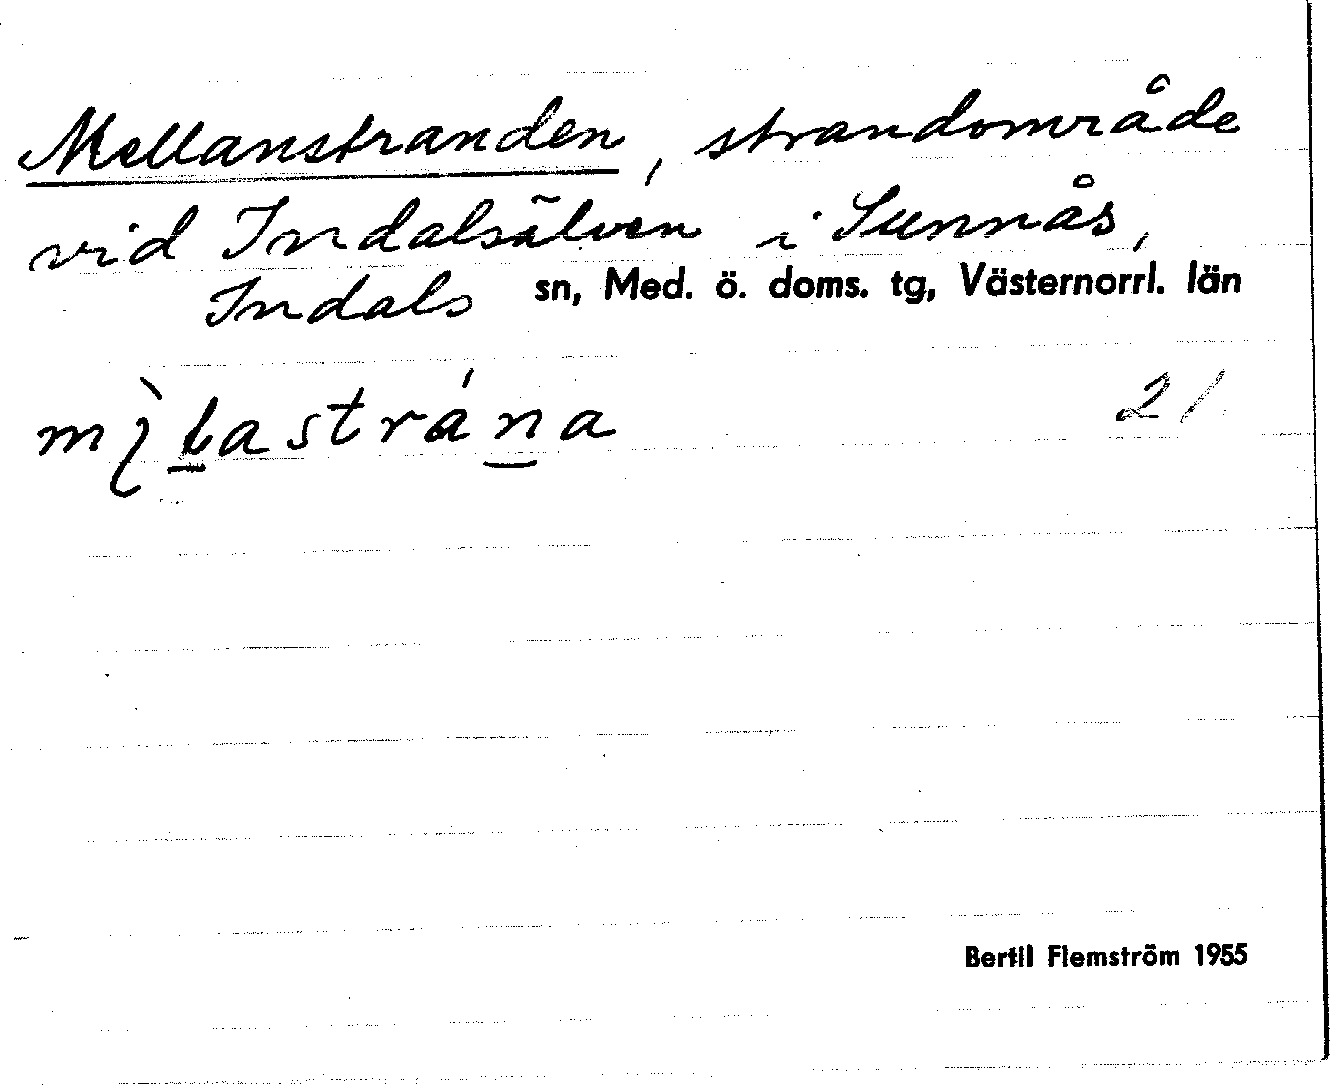 Mellanstranden, strandområde
vid Indalsälven i Sunnås,
Indals sn, Med. ö. doms. tg, Västernorrl. län
21
Bertil Flemström 1955